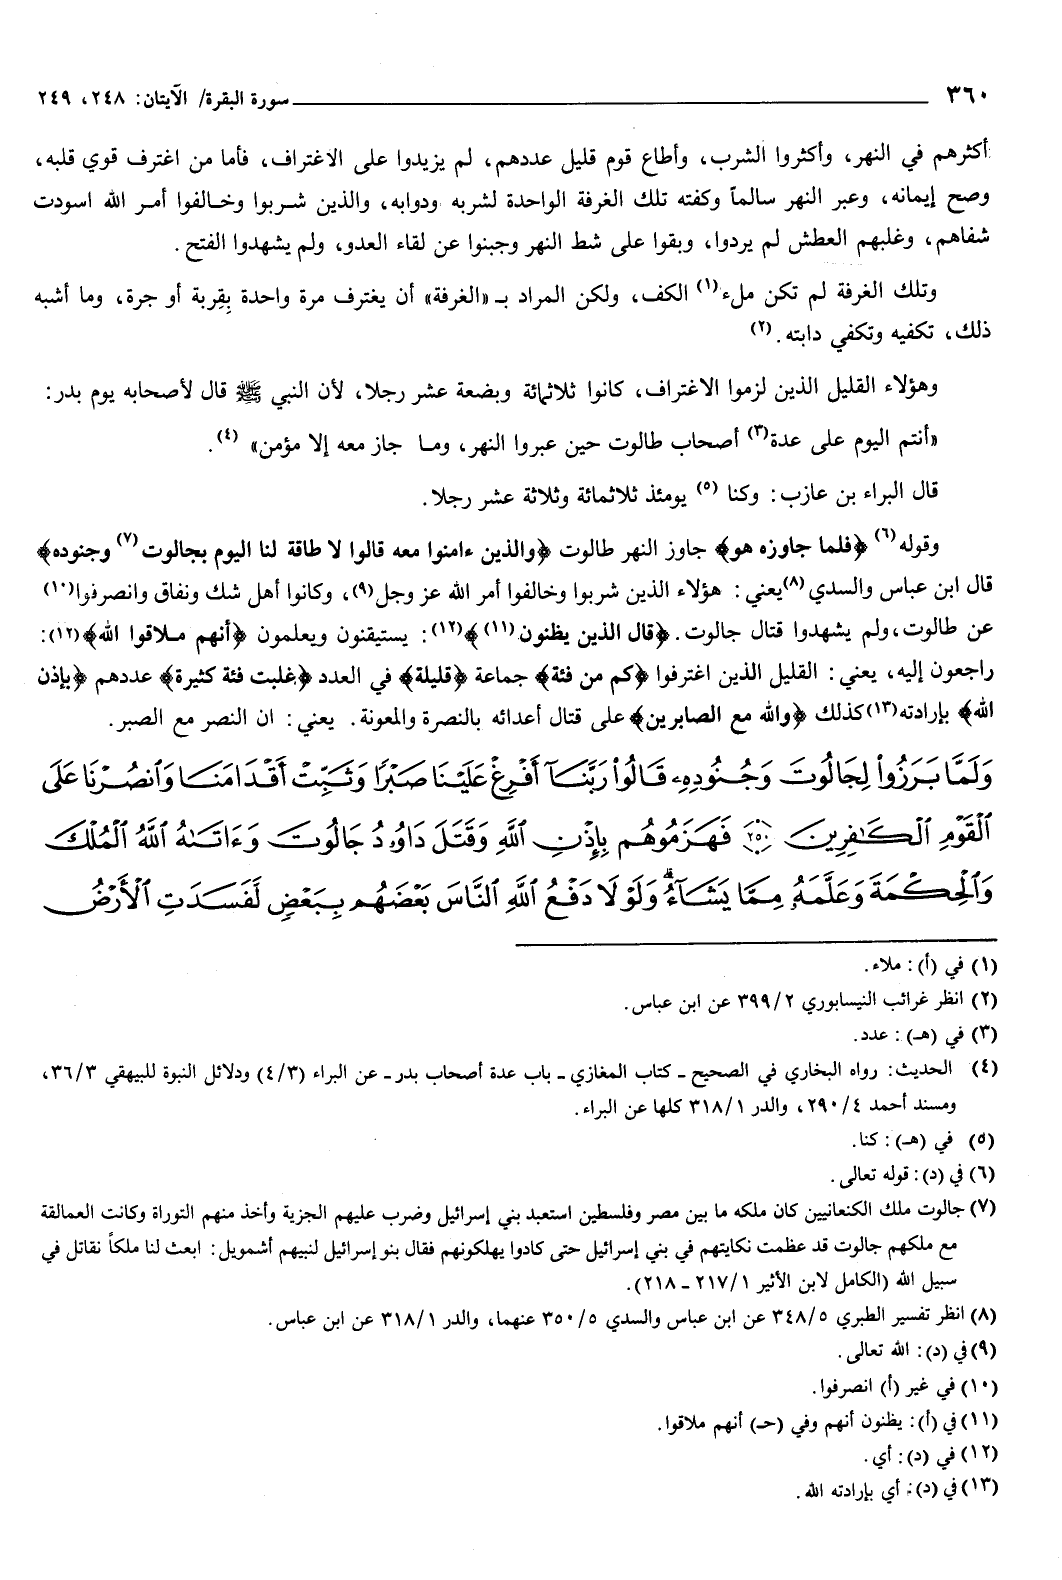 ٣٦٠ ــــــــــ سورة البقرة/ الآيتان: ٢٤٨، ٢٤٩
أكثرهم في النهر، وأكثروا الشرب، وأطاع قوم قليل عددهم، لم يزيدوا على الاغتراف، فأما من اغترف قوي قلبه،
وصح إيمانه، وعبر النهر سالماً وكفته تلك الغرفة الواحدة لشربه ودوابه، والذين شربوا وخالفوا أمر الله اسودت
شفاهم، وغلبهم العطش لم يردوا، وبقوا على شط النهر وجبنوا عن لقاء العدو، ولم يشهدوا الفتح.
وتلك الغرفة لم تكن ملء(١) الكف، ولكن المراد بـ «الغرفة» أن يغترف مرة واحدة بِقِربة أو جرة، وما أشبه
ذلك، تكفيه وتكفي دابته.(٢)
وهؤلاء القليل الذين لزموا الاغتراف، كانوا ثلاثمائة وبضعة عشر رجلا، لأن النبي ﷺ قال لأصحابه يوم بدر:
«أنتم اليوم على عدة(٣) أصحاب طالوت حين عبروا النهر، وما جاز معه إلا مؤمن» (٤).
قال البراء بن عازب: وكنا (٥) يومئذ ثلاثمائة وثلاثة عشر رجلا.
وقوله(٦) ﴿فلما جاوزه هو﴾ جاوز النهر طالوت ﴿والذين ءامنوا معه قالوا لا طاقة لنا اليوم بجالوت(٧) وجنوده﴾
قال ابن عباس والسدي(٨) يعني: هؤلاء الذين شربوا وخالفوا أمر الله عز وجل(٩)، وكانوا أهل شك ونفاق وانصرفوا(١٠)
عن طالوت، ولم يشهدوا قتال جالوت. ﴿قال الذين يظنون (١١)﴾(١٢): يستيقنون ويعلمون ﴿أنهم ملاقوا الله﴾(١٢):
راجعون إليه، يعني: القليل الذين اغترفوا ﴿كم من فئة﴾ جماعة ﴿قليلة﴾ في العدد ﴿غلبت فئة كثيرة﴾ عددهم ﴿بإذن
الله﴾ بإرادته(١٣) كذلك ﴿والله مع الصابرين﴾ على قتال أعدائه بالنصرة والمعونة. يعني: ان النصر مع الصبر.
وَلَمَّا بَرَزُوا۟ لِجَالُوتَ وَجُنُودِهِۦ قَالُوا۟ رَبَّنَآ أَفْرِغْ عَلَيْنَا صَبْرًا وَثَبِّتْ أَقْدَامَنَا وَٱنصُرْنَا عَلَى
ٱلْقَوْمِ ٱلْكَٰفِرِينَ ٢٥٠ فَهَزَمُوهُم بِإِذْنِ ٱللَّهِ وَقَتَلَ دَاوُۥدُ جَالُوتَ وَءَاتَىٰهُ ٱللَّهُ ٱلْمُلْكَ
وَٱلْحِكْمَةَ وَعَلَّمَهُۥ مِمَّا يَشَآءُ ۗ وَلَوْلَا دَفْعُ ٱللَّهِ ٱلنَّاسَ بَعْضَهُم بِبَعْضٍ لَّفَسَدَتِ ٱلْأَرْضُ
(١) في (أ): ملاء.
(٢) انظر غرائب النيسابوري ٣٩٩/٢ عن ابن عباس.
(٣) في (هـ): عدد.
(٤) الحديث: رواه البخاري في الصحيح ـ كتاب المغازي ـ باب عدة أصحاب بدر ـ عن البراء (٤/٣) ودلائل النبوة للبيهقي ٣٦/٣،
ومسند أحمد ٢٩٠/٤، والدر ٣١٨/١ كلها عن البراء.
(٥) في (هـ): كنا.
(٦) في (د): قوله تعالى.
(٧) جالوت ملك الكنعانيين كان ملكه ما بين مصر وفلسطين استعبد بني إسرائيل وضرب عليهم الجزية وأخذ منهم التوراة وكانت العمالقة
مع ملكهم جالوت قد عظمت نكايتهم في بني إسرائيل حتى كادوا يهلكونهم فقال بنو إسرائيل لنبيهم أشمويل: ابعث لنا ملكاً نقاتل في
سبيل الله (الكامل لابن الأثير ٢١٧/١ ـ ٢١٨).
(٨) انظر تفسير الطبري ٣٤٨/٥ عن ابن عباس والسدي ٣٥٠/٥ عنهما، والدر ٣١٨/١ عن ابن عباس.
(٩) في (د): الله تعالى.
(١٠) في غير (أ) انصرفوا.
(١١) في (أ): يظنون أنهم وفي (حـ) أنهم ملاقوا.
(١٢) في (د): أي.
(١٣) في (د): أي بإرادته الله.